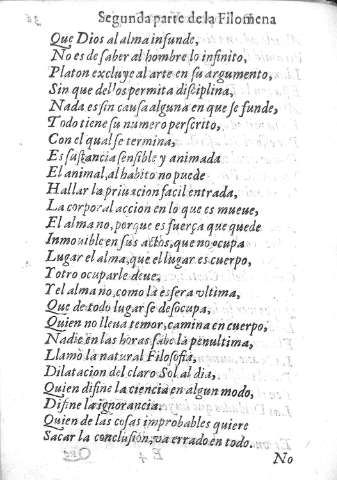 Segunda parte de la Filomena
Que Dios al alma infunde,
No es de saber al hombre lo infinito,
Platon excluye al arte en su argumento,
Sin que dellos permita disciplina,
Nada es sin causa alguna en que se funde,
Todo tiene su numero perscrito,
Con el qual se termina,
Es sustancia sensible y animada
El animal, al habito no puede
Hallar la priuacion facil entrada,
La corporal accion en lo que es mueue,
El alma no, porque es fuerça que quede
Inmouible en sus actos, que no ocupa
Lugar el alma, que el lugar es cuerpo,
Y otro ocuparle deue,
Y el alma no, como la esfera vltima,
Que de todo lugar se desocupa,
Quien no lleua temor, camina en cuerpo,
Nadie en las horas sabe la penultima,
Llamò la natural Filosofia,
Dilatacion del claro Sol al dia,
Quien difine la ciencia en algun modo,
Difine la ignorancia.
Quien de las cosas improbables quiere
Sacar la conclusion, va errado en todo.
E 4
No